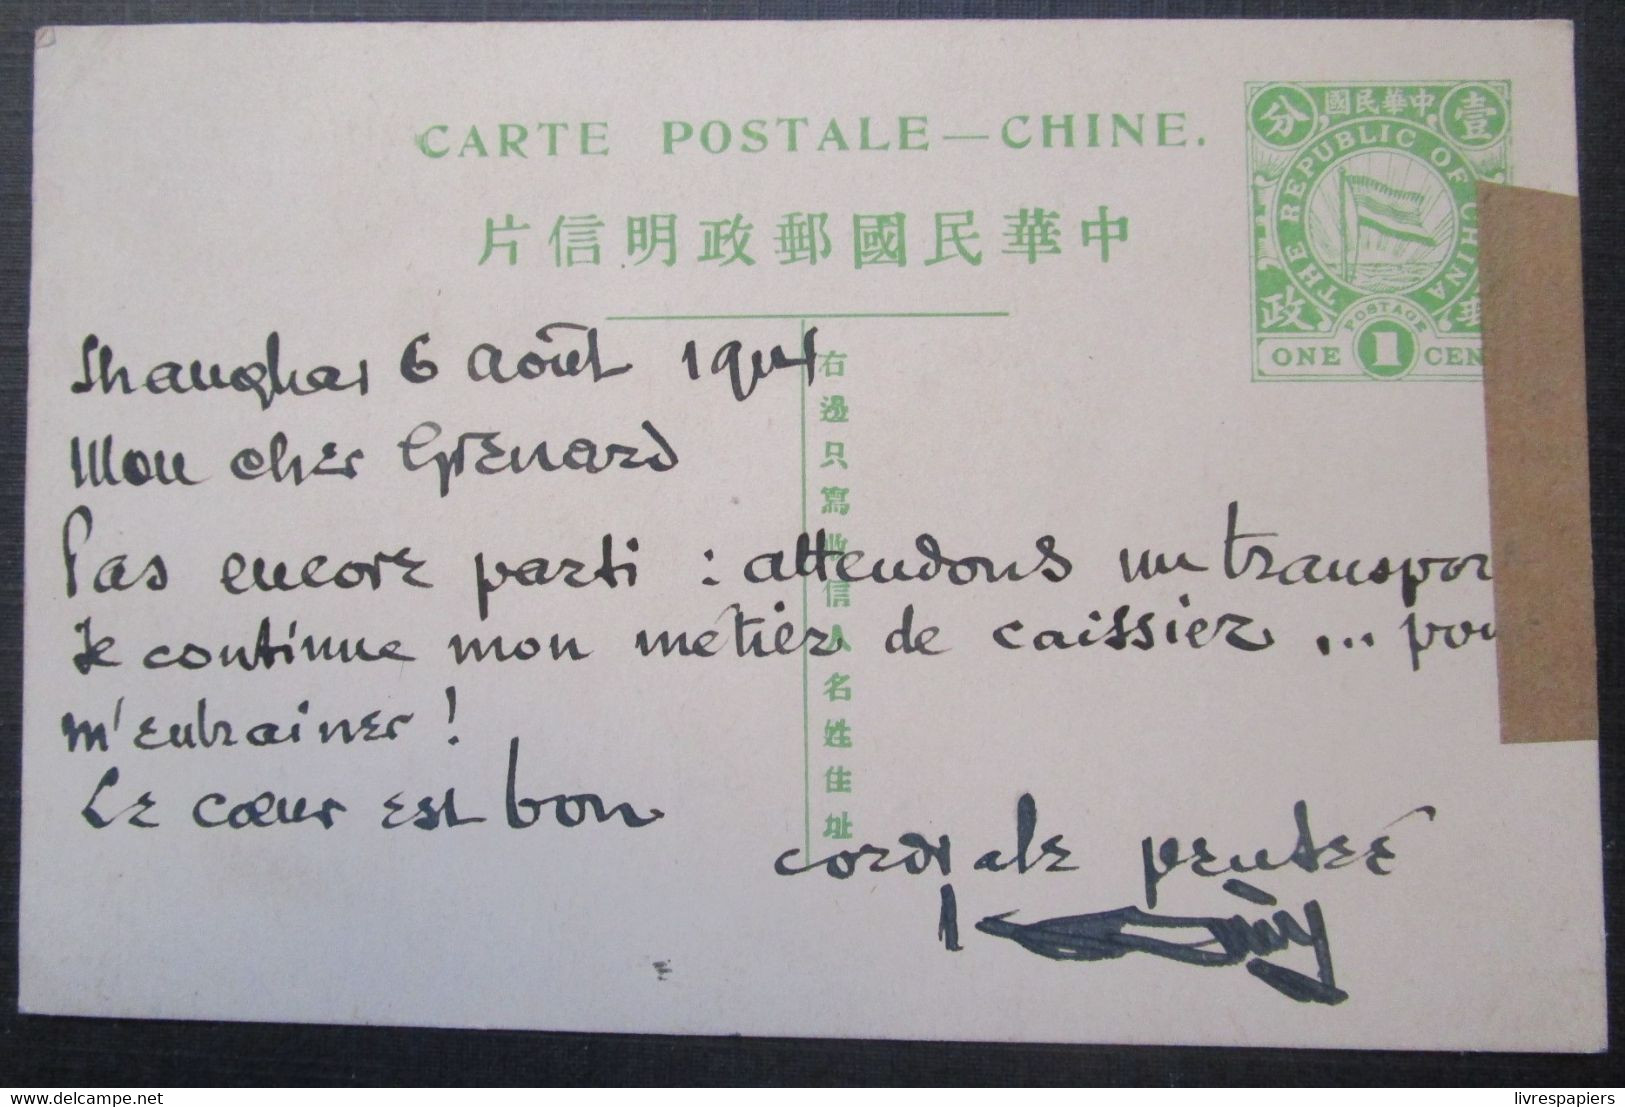 CARTE POSTALE — CHINE.
片信明政郵國民華中
分 國民華中 壹
THE REPUBLIC OF CHINA
政
POSTAGE
ONE 1 CEN
右邊只寫收信人名姓住址
Shanghai 6 août 1914
Mon cher Grenard
Pas encore parti : attendons un transpor
Je continue mon métier de caissier ... pou
m'entrainer !
Le cœur est bon
cordiale pensée
livrespapiers